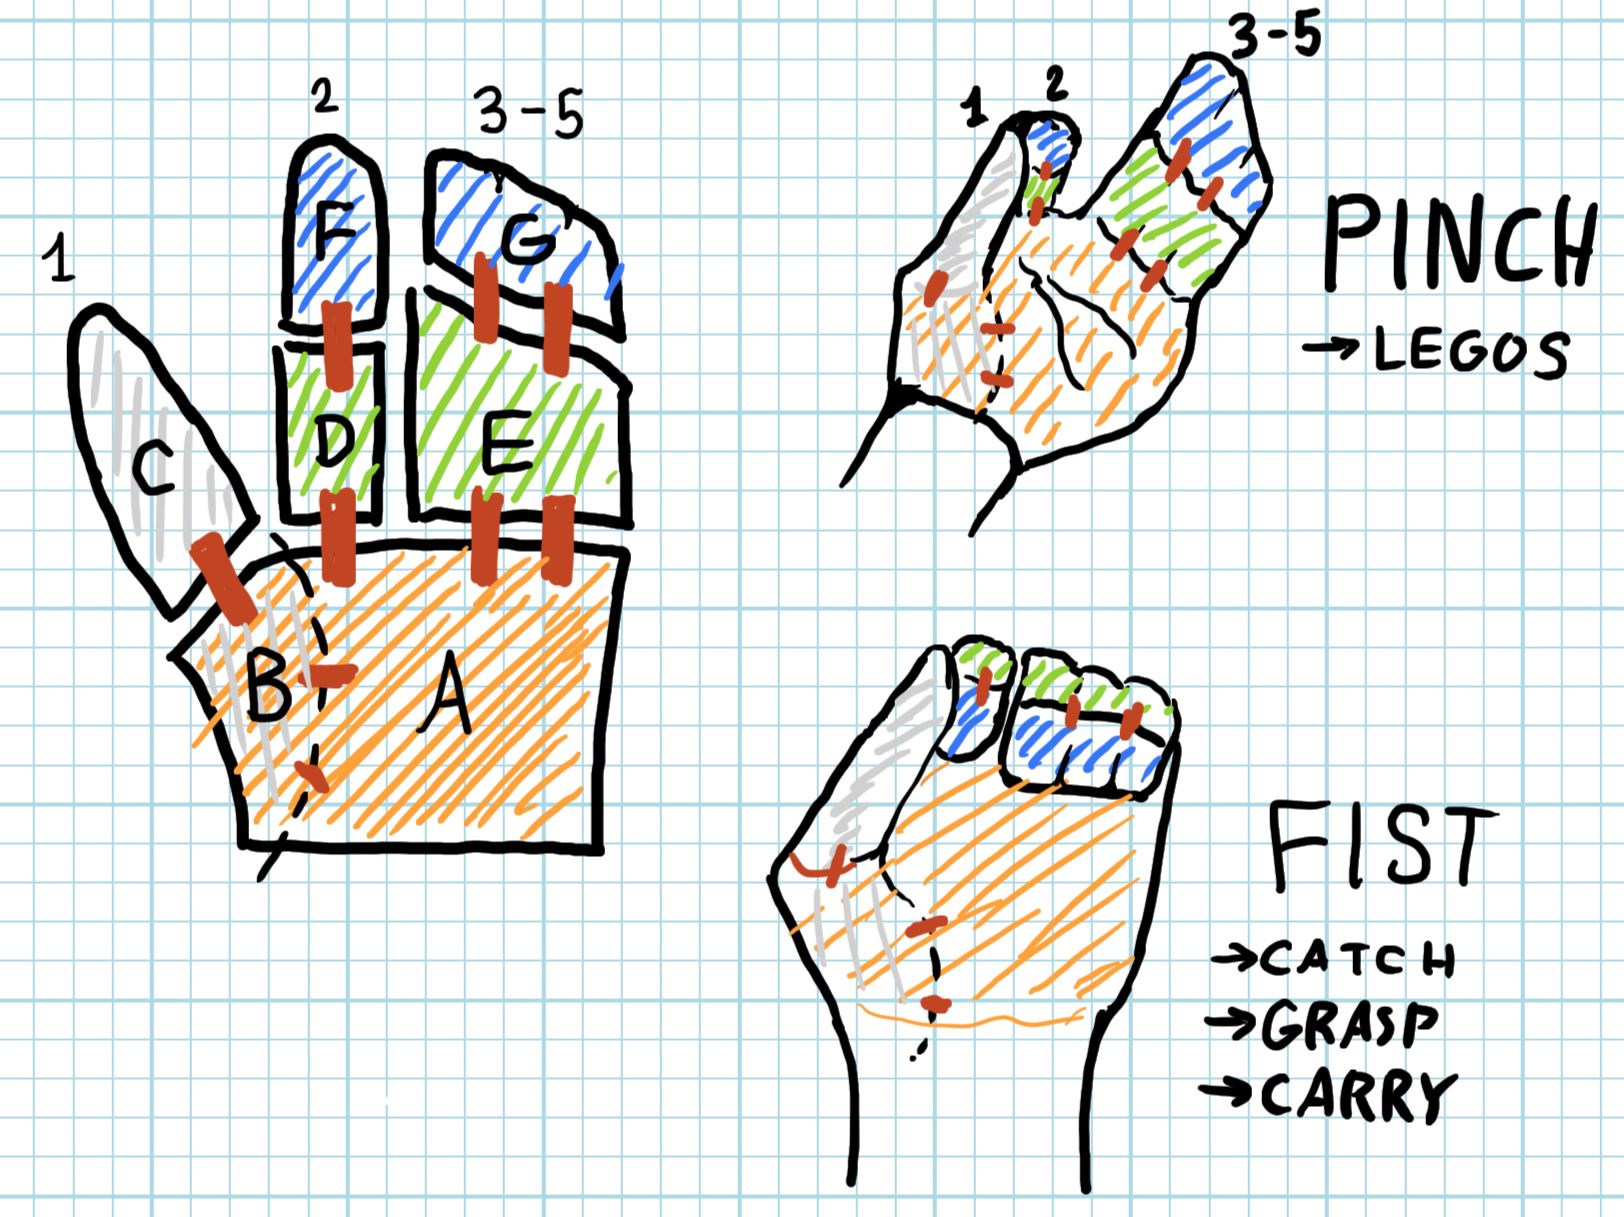 1
2
3-5
F
G
C
D
E
B
A
1
2
3-5
PINCH
→ LEGOS
FIST
→ CATCH
→ GRASP
→ CARRY